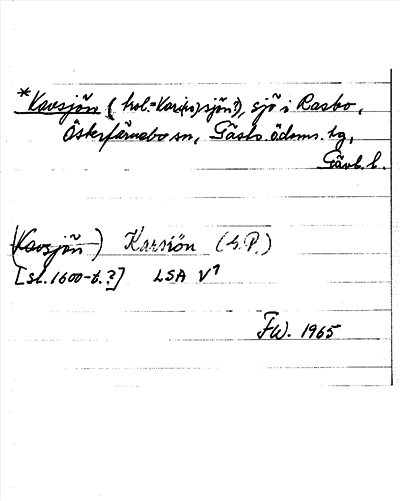 *Kavsjön (trol.=Kar(in)sjön?), sjö i Rasbo,
Österfärnebo sn, Gästr. ödem. tg,
Gävl. l.
(Kavsjön) Karsiön (G.P.)
[sl. 1600-t.?] LSA V⁷
FW. 1965